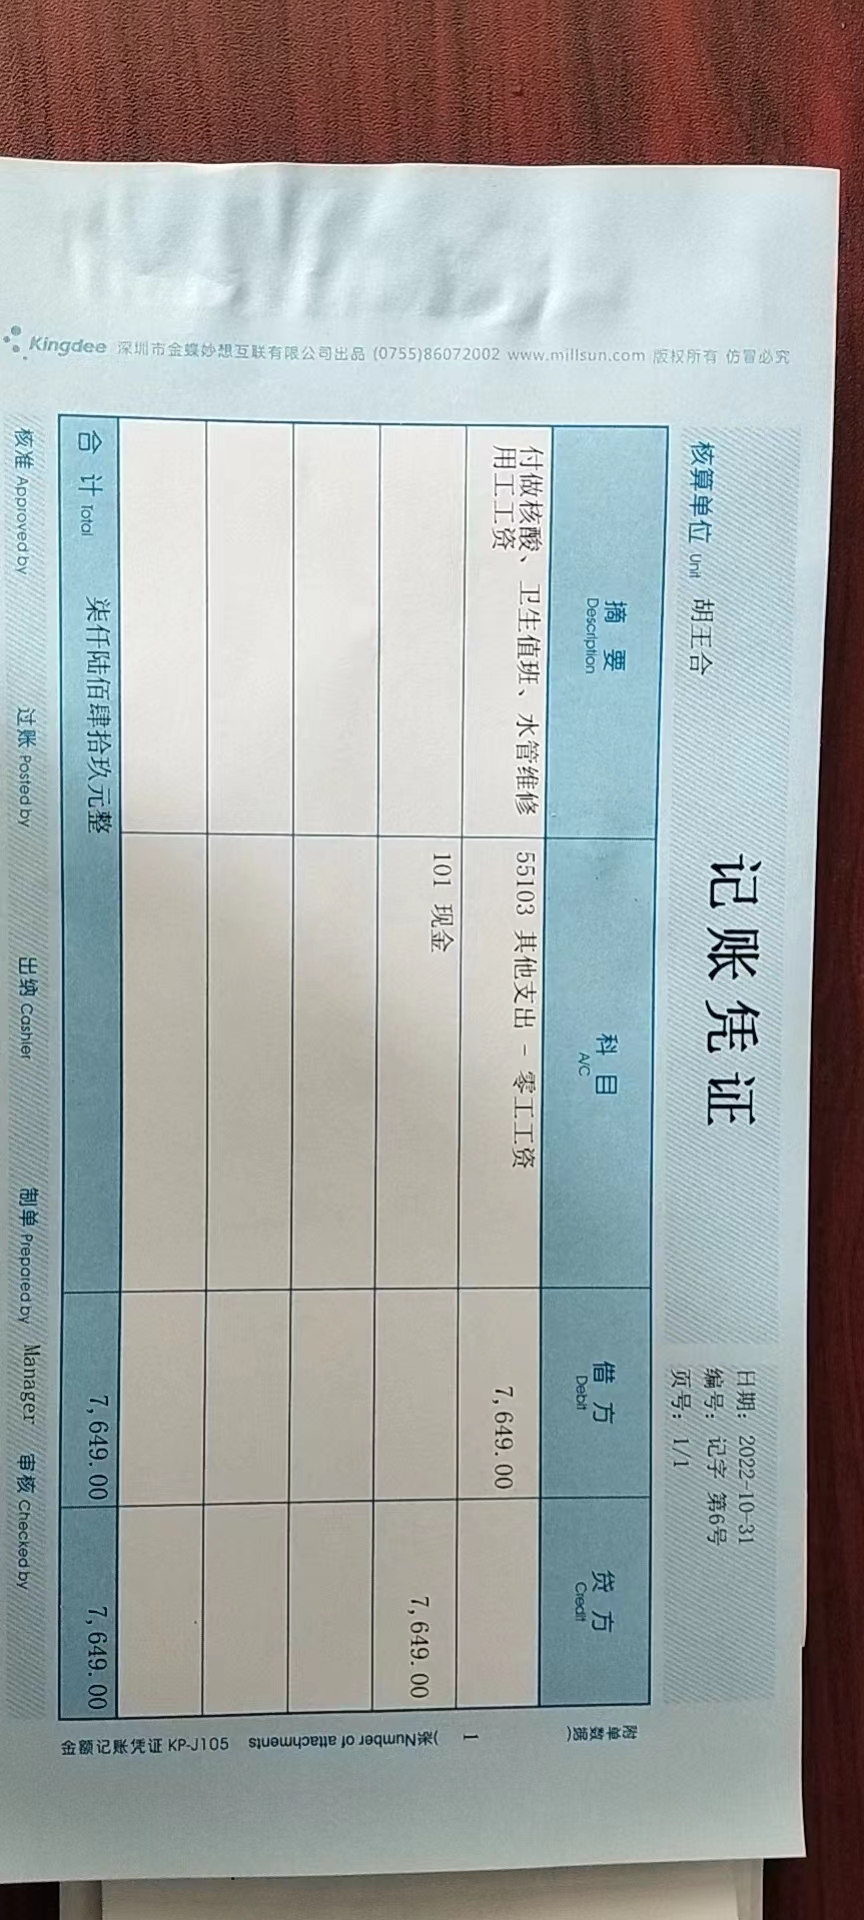 记账凭证
核算单位 Unit 胡王合
日期: 2022-10-31
编号: 记字 第6号
页号: 1/1
摘要 科目 借方 贷方
Description A/C Debit Credit
付做核酸、卫生值班、水管维修 55103 其他支出 - 零工工资 7,649.00
用工工资
101 现金 7,649.00
合计 Total 柒仟陆佰肆拾玖元整 7,649.00 7,649.00
核准 Approved by 过账 Posted by 出纳 Cashier 制单 Prepared by Manager 审核 Checked by
附单据数( 1 )张 Number of attachments
金额记账凭证 KP-J105
Kingdee 深圳市金蝶妙想互联有限公司出品 (0755)86072002 www.millsun.com 版权所有 仿冒必究